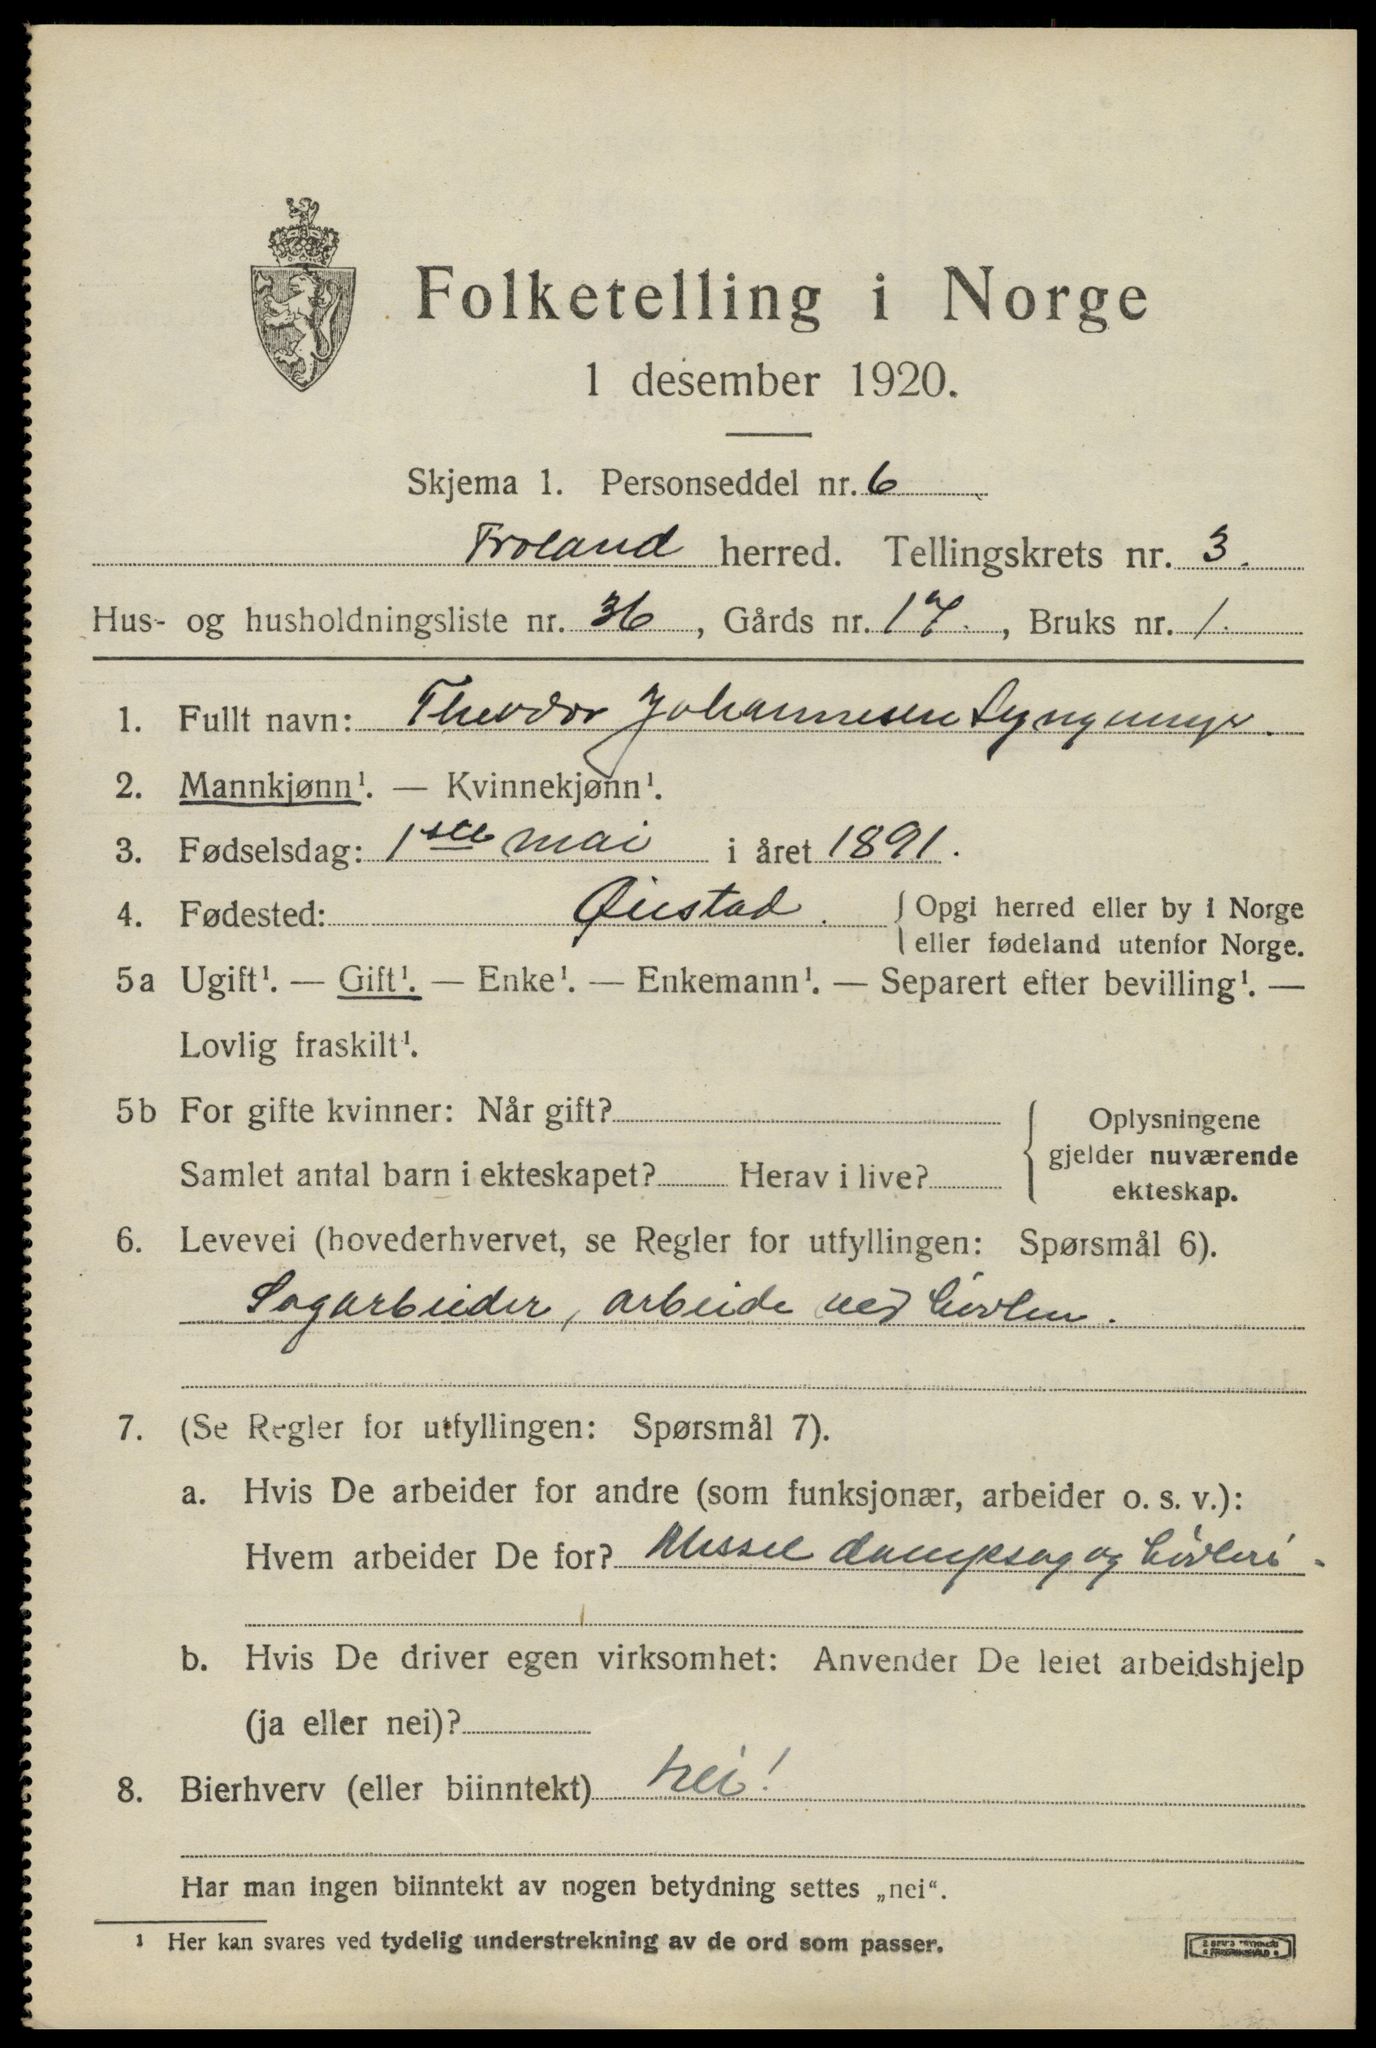 Folketelling i Norge
1 desember 1920.
Skjema 1. Personseddel nr. 6
Froland herred. Tellingskrets nr. 3.
Hus- og husholdningsliste nr. 36, Gårds nr. 17., Bruks nr. 1.
1. Fullt navn: Theodor Johannesen Lyngmyr.
2. Mannkjønn¹. — Kvinnekjønn¹.
3. Fødselsdag: 1ste mai i året 1891.
4. Fødested: Øiestad. { Opgi herred eller by i Norge
eller fødeland utenfor Norge.
5a Ugift¹. — Gift¹. — Enke¹. — Enkemann¹. — Separert efter bevilling¹. —
Lovlig fraskilt¹.
5b For gifte kvinner: Når gift?
Samlet antal barn i ekteskapet? Herav i live?
Oplysningene
gjelder nuværende
ekteskap.
6. Levevei (hovederhvervet, se Regler for utfyllingen: Spørsmål 6).
Sagarbeider, arbeide ved høvlen.
7. (Se Regler for utfyllingen: Spørsmål 7).
a. Hvis De arbeider for andre (som funksjonær, arbeider o. s. v.):
Hvem arbeider De for? Messel dampsag og høvleri.
b. Hvis De driver egen virksomhet: Anvender De leiet arbeidshjelp
(ja eller nei)?
8. Bierhverv (eller biinntekt) nei!
Har man ingen biinntekt av nogen betydning settes „nei“.
¹ Her kan svares ved tydelig understrekning av de ord som passer.